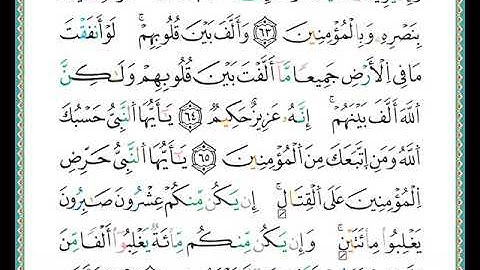 بِنَصْرِهِۦ وَبِالْمُؤْمِنِينَ ٦٣ وَأَلَّفَ بَيْنَ قُلُوبِهِمْ ۚ لَوْ أَنفَقْتَ
مَا فِي الْأَرْضِ جَمِيعًا مَّا أَلَّفْتَ بَيْنَ قُلُوبِهِمْ وَلَٰكِنَّ
اَللَّهَ أَلَّفَ بَيْنَهُمْ ۚ إِنَّهُۥ عَزِيزٌ حَكِيمٌ ٦٤ يَٰأَيُّهَا اَلنَّبِيُّ حَسْبُكَ
اَللَّهُ وَمَنِ اِتَّبَعَكَ مِنَ الْمُؤْمِنِينَ ٦٥ يَٰأَيُّهَا اَلنَّبِيُّ حَرِّضِ
اِلْمُؤْمِنِينَ عَلَى الْقِتَالِ ۚ إِن يَكُن مِّنكُمْ عِشْرُونَ صَٰبِرُونَ
يَغْلِبُوا مِائَتَيْنِ ۚ وَإِن يَكُن مِّنكُم مِّائَةٌ يَغْلِبُوا أَلْفًا مِّنَ